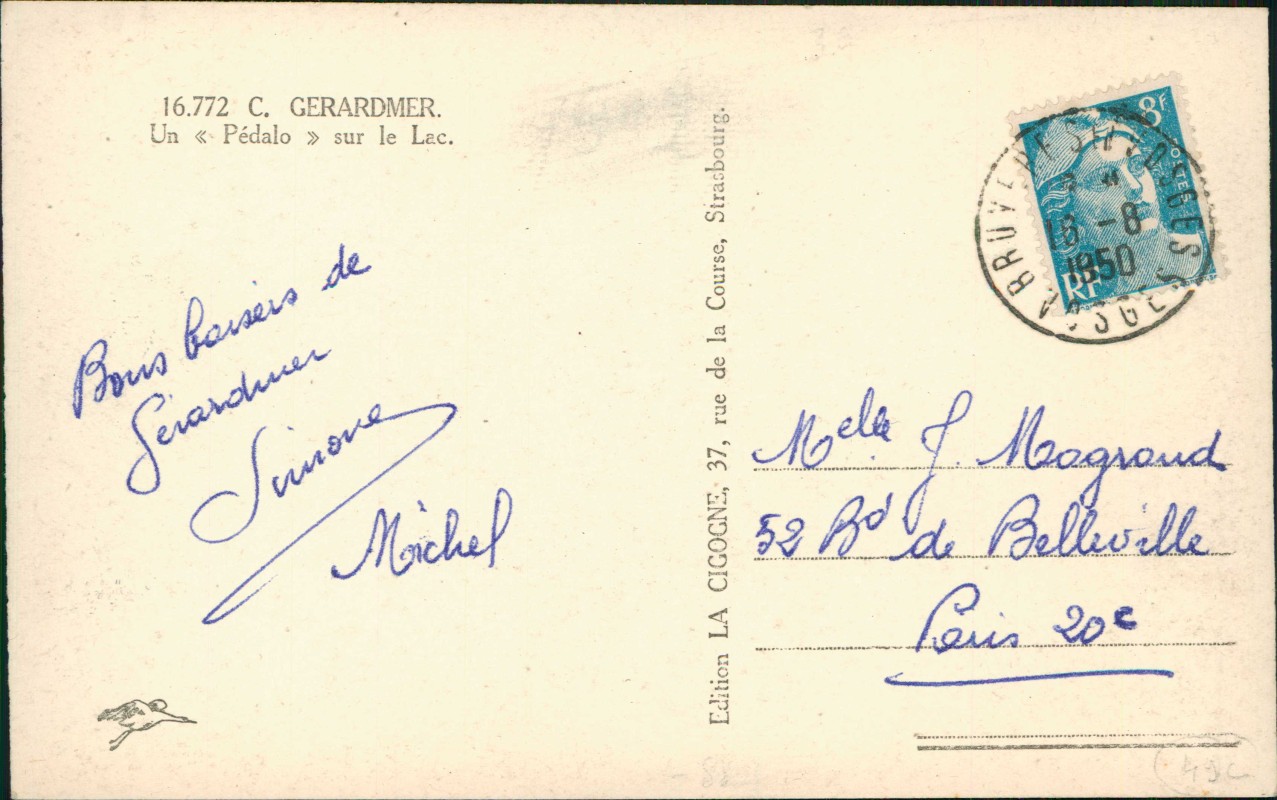 16.772 C. GERARDMER.
Un « Pédalo » sur le Lac.
Bons baisers de
Gérardmer
Simone
Michel
Edition LA CIGOGNE, 37, rue de la Course, Strasbourg.
8F
POSTES
RF
LABRUVERES VOSGES
16 -8
1950
VOSGES
Melle J. Magraud
52 Bd de Belleville
Paris 20e